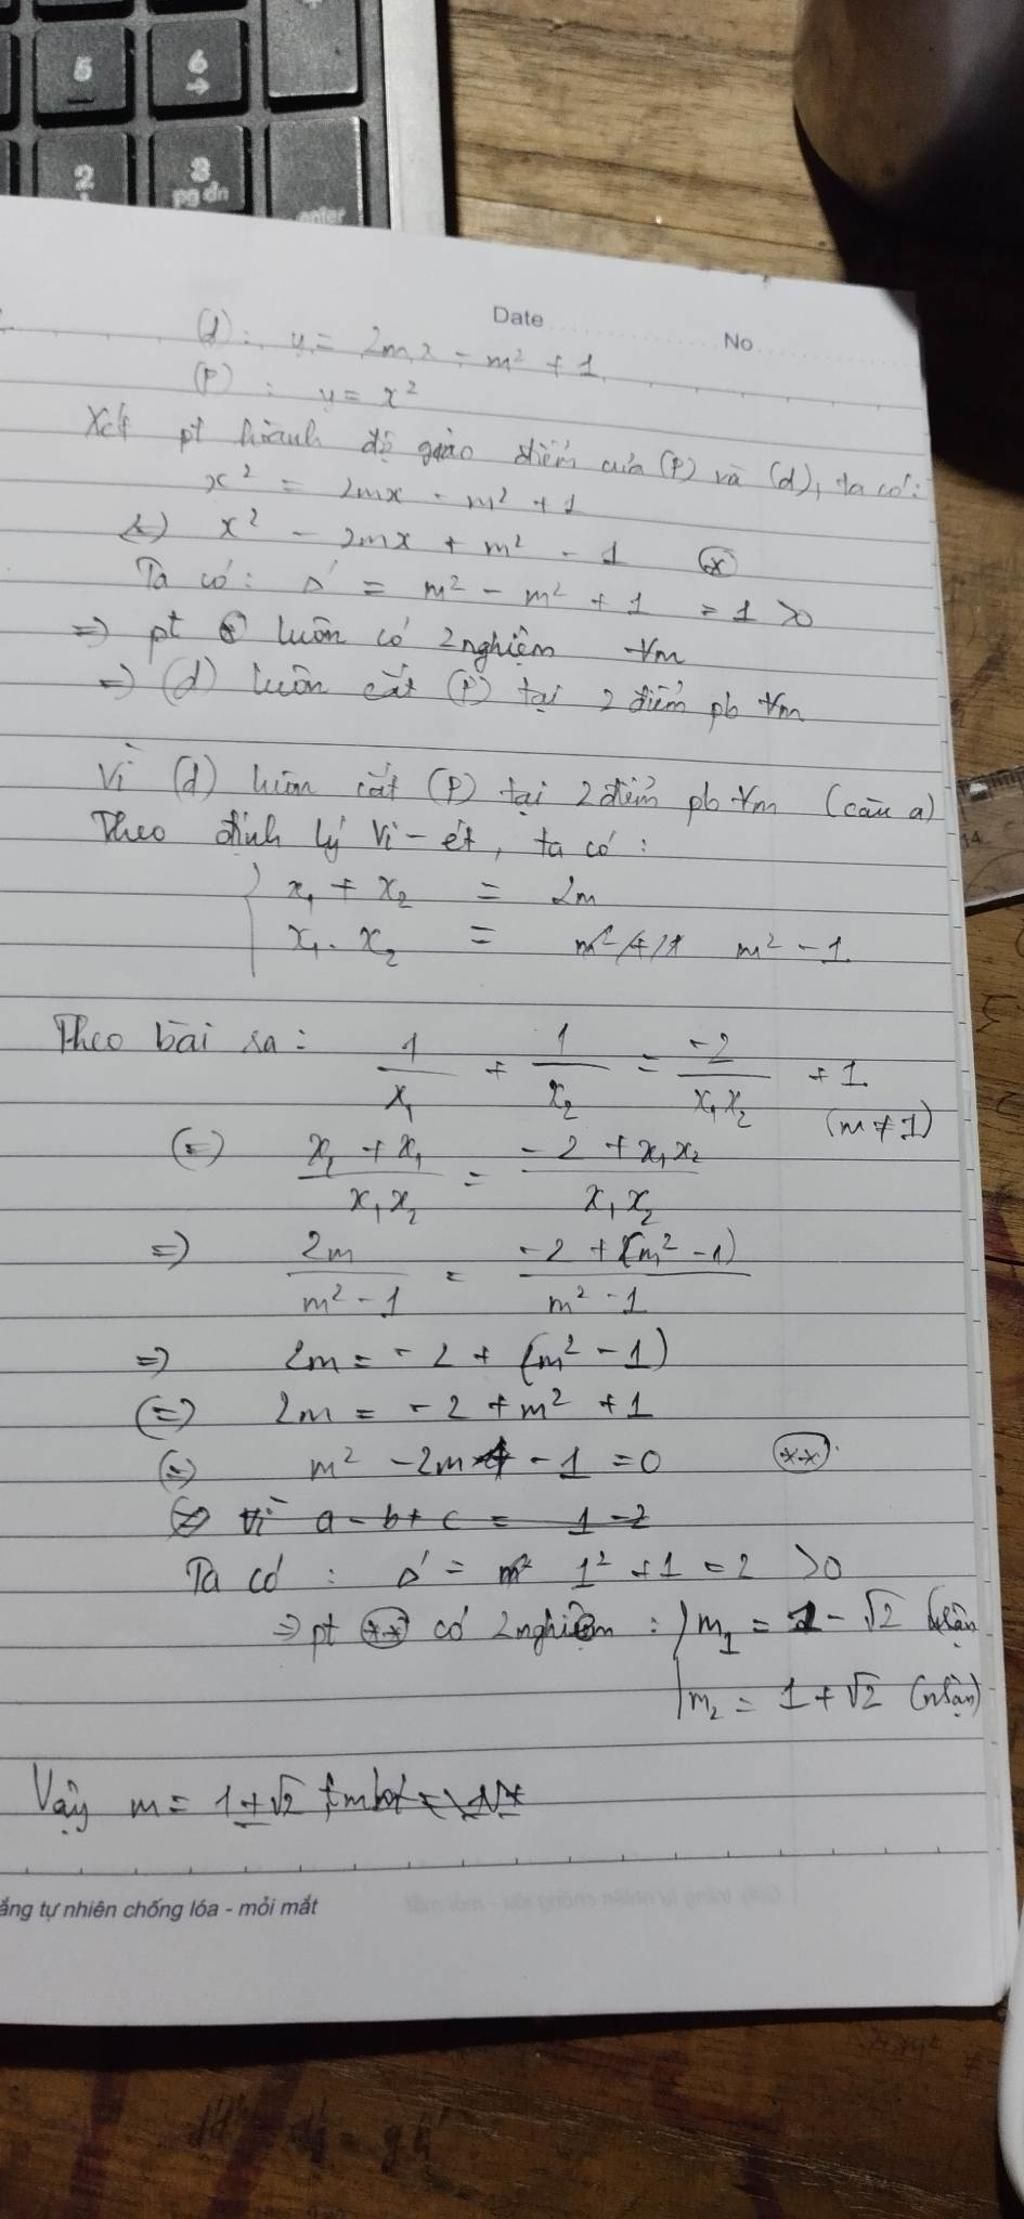 5
6
2
3
pg dn
enter
Date
No
(d): y = 2mx - m² + 1
(P) : y = x²
Xét pt hoành độ giao điểm của (P) và (d), ta có:
x² = 2mx - m² + 1
(=) x² - 2mx + m² - 1 (*)
Ta có: Δ' = m² - m² + 1 = 1 >0
=> pt (*) luôn có 2 nghiệm ∀m
=> (d) luôn cắt (P) tại 2 điểm pb ∀m
Vì (d) luôn cắt (P) tại 2 điểm pb ∀m (câu a)
Theo định lý Vi-ét, ta có:
x₁ + x₂ = 2m
x₁. x₂ = m² - 1
Theo bài ra: 1/x₁ + 1/x₂ = -2/x₁x₂ + 1
(m ≠ 1)
(=) (x₂ + x₁)/(x₁x₂) = (-2 + x₁x₂)/(x₁x₂)
=) 2m/(m² - 1) = (-2 + (m² - 1))/(m² - 1)
=) 2m = -2 + (m² - 1)
(=) 2m = -2 + m² + 1
(=) m² - 2m - 1 = 0 (**)
vì a - b + c = 1 - 2
Ta có: Δ' = 1² + 1 = 2 >0
=> pt (**) có 2 nghiệm : m₁ = 1 - √2 (nhận)
m₂ = 1 + √2 (nhận)
Vậy m = 1 ± √2
ắng tự nhiên chống lóa - mỏi mắt